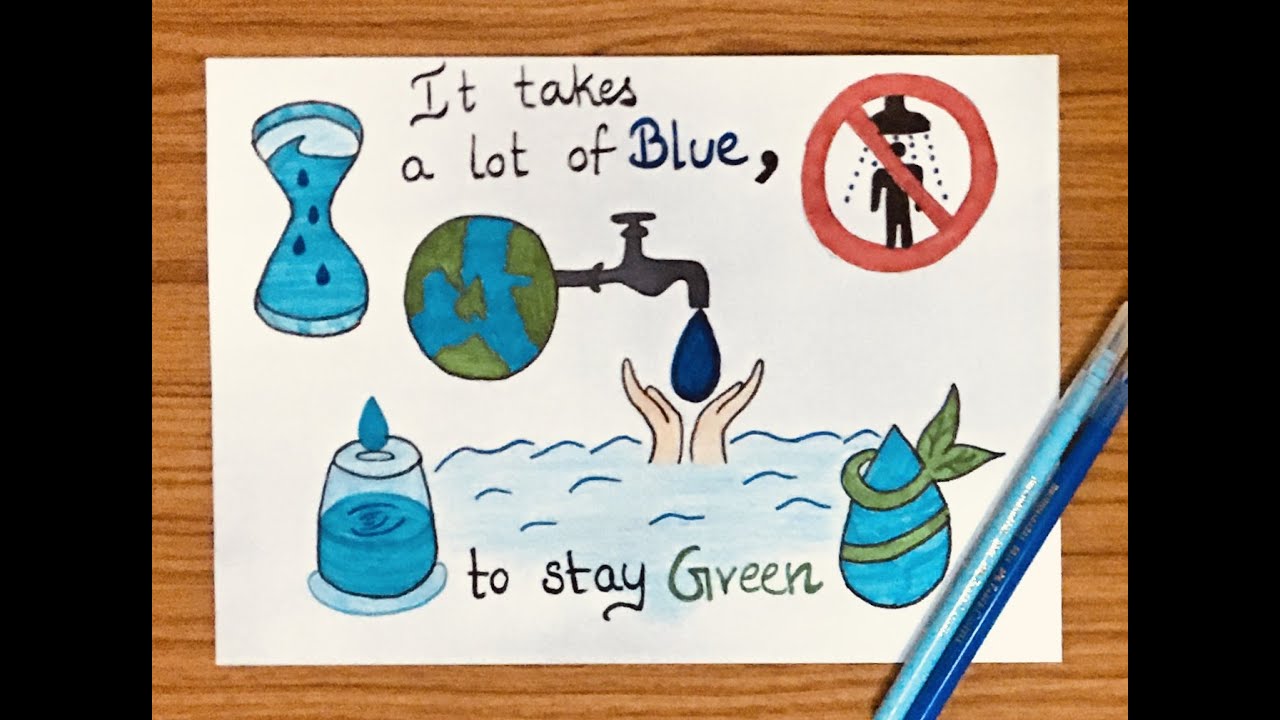 It takes
a lot of Blue,
to stay Green